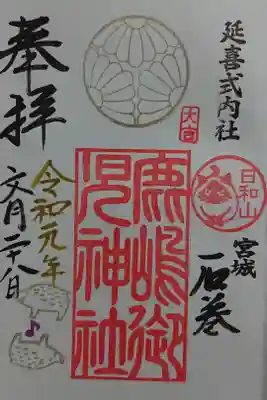 延喜式内社
大同
日和山
宮城
石巻
鹿嶋御
児神社
奉拝
令和元年
文月二十八日